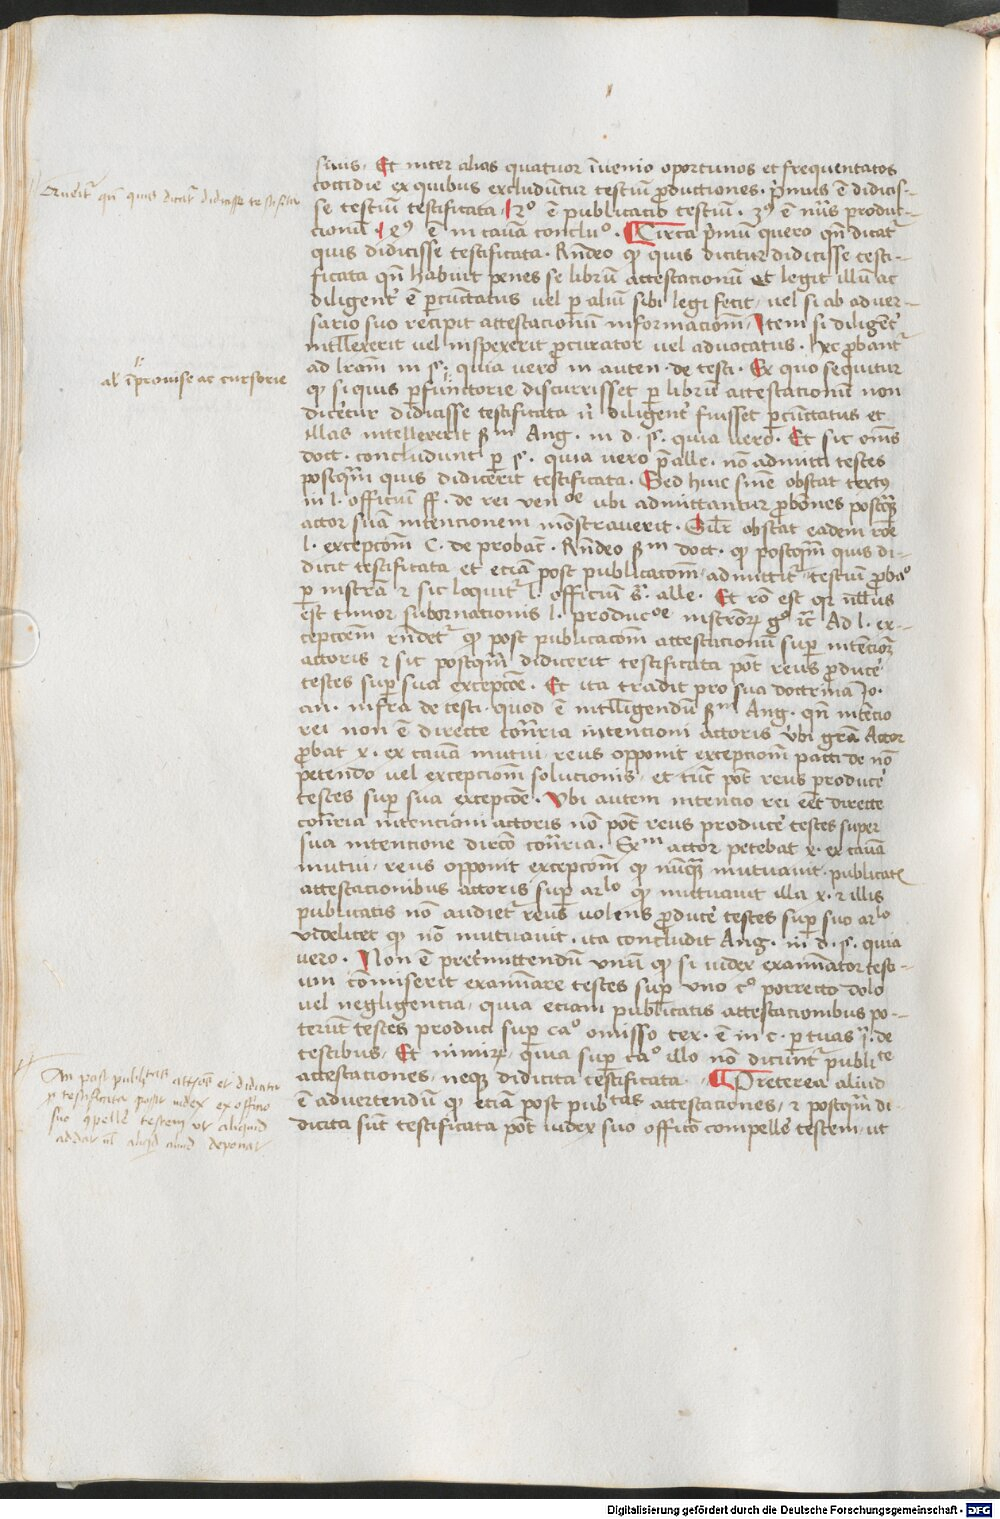 sinus. Et inter alias quatuor īuenio oportunos et frequentatos
coctidie ex quibus excludūtur testiū ꝓductiones. p̄mus ē didicis-
se testiū testificata. 2º ē publicatio testiū. 3ꝰ ē
ē in cauā concluº. Circa p̄mū quero qn̄ dicat᷑
quis didicisse testificata. Rn̄deo ꝙ quis dicitur didicisse testi-
ficata qn̄ habuit penes se librū attestacionū et legit illū ac
diligent᷑ ē ꝑcūctatus uel ꝑ aliū sibi legi fecit, uel si ab aduer-
sario suo recipit attestacionū informacionē, Item si diligēt᷑
intll̄exerit uel inspexerit ꝓcurator uel aduocatus. hec ꝓbant᷑
ad l̄ram in §. quia uero in auten. de testi. Ex quo sequitur
ꝙ si quis ꝑfūctorie discurrisset ꝑ librū attestacionū non
dicēetur didicisse testificata n̄ diligent᷑ fuisset ꝑcūctatus et
illas intellexerit ẜm Ang. in d. §. quia uero. Et sic om̄s
doct. concludunt ꝑ §. quia uero p̄alle. nō admitti testes
postqm̄ quis didicerit testificata. Sed huic sn̄ie obstat textꝰ
in l. officiū ff. de rei venºᵉ ubi admittantur ꝓbōnes postqꝫ
actor suā intencionem mōstrauerit. Silr̄ obstat eadem rōe
l. excepcom̄ C. de probat̄. Rn̄deo ẜm doct. ꝙ postqm̄ quis di-
dicit testificata et eciā post publicacom̄, admittit᷑ testiū ꝓbaº
ꝑ instrā ⁊ sic loquit᷑ l. officiū s̄. alle. Et rō est qr nll̄us
est timor subornacionis l. producºᵉ
cepcōem rn̄det᷑ ꝙ post publicacom̄ attestacionū suꝑ intēcionē
actoris ⁊ sic postqm̄ didicerit testificata pōt reus ꝓducē
testes suꝑ sua excepcōe. Et ita tradit pro sua doctrina Jo.
an. infra de testi. quod ē intll̄igendū ẜm Ang. qn̄ intēcio
rei non ē directe cont̄ria intencioni actoris vbi gr̄a Actor
ꝓbat x. ex cauā mutui, reus opponit excepcioni pacti de nō
petendo uel excepciom̄ solucionis, et tūc pōt reus producē
testes suꝑ sua excepcōe. Vbi autem intencio rei eēt directe
cont̄ria intencioni actoris nō pōt reus producē testes super
sua intencione dircō cont̄ria. Exm actor petebat x. ex cauā
mutui, reus opponit excepcom̄ ꝙ nūqꝫ mutuauit. publicatꝭ
attestacionibus actoris suꝑ arˡᵒ ꝙ mutuauit illa x. ⁊ illis
publicatis nō audiet᷑ reus uolens ꝓducē testes suꝑ suo arˡᵒ
videlicet ꝙ nō mutuauit. ita concludit Ang. in d. §. quia
uero. Non ē pretmittendū vnū ꝙ si iudex examīator testi-
um cōmiserit examīare testes suꝑ vno cº porrecto dolo
uel negligencia, quia eciam publicatis attestacionibus po-
terūt testes produci suꝑ caº omisso tex. ē in c. ꝑ tuas ij. de
testibus. Et nimirꝫ, quia suꝑ caº illo nō dicūnt᷑ publiᵗᵉ
attestaciones, neqꝫ didicita testificata. Preterea aliud
ē aduertendū ꝙ eciā post pubᵗᵃˢ attestaciones, ⁊ postqm̄ di-
dicita sūt testificata pōt iudex suo officō compelle testem, ut
qn̄ quis dicat᷑ didicisse testificata
al' īprouise ac cursorie
An post publᵗᵃˢ attōes et didicita
testificata possit iudex ex officio
suo ꝯpelle testem ut aliquid
addat uł aliqd aliud deponat
Digitalisierung gefördert durch die Deutsche Forschungsgemeinschaft - DFG